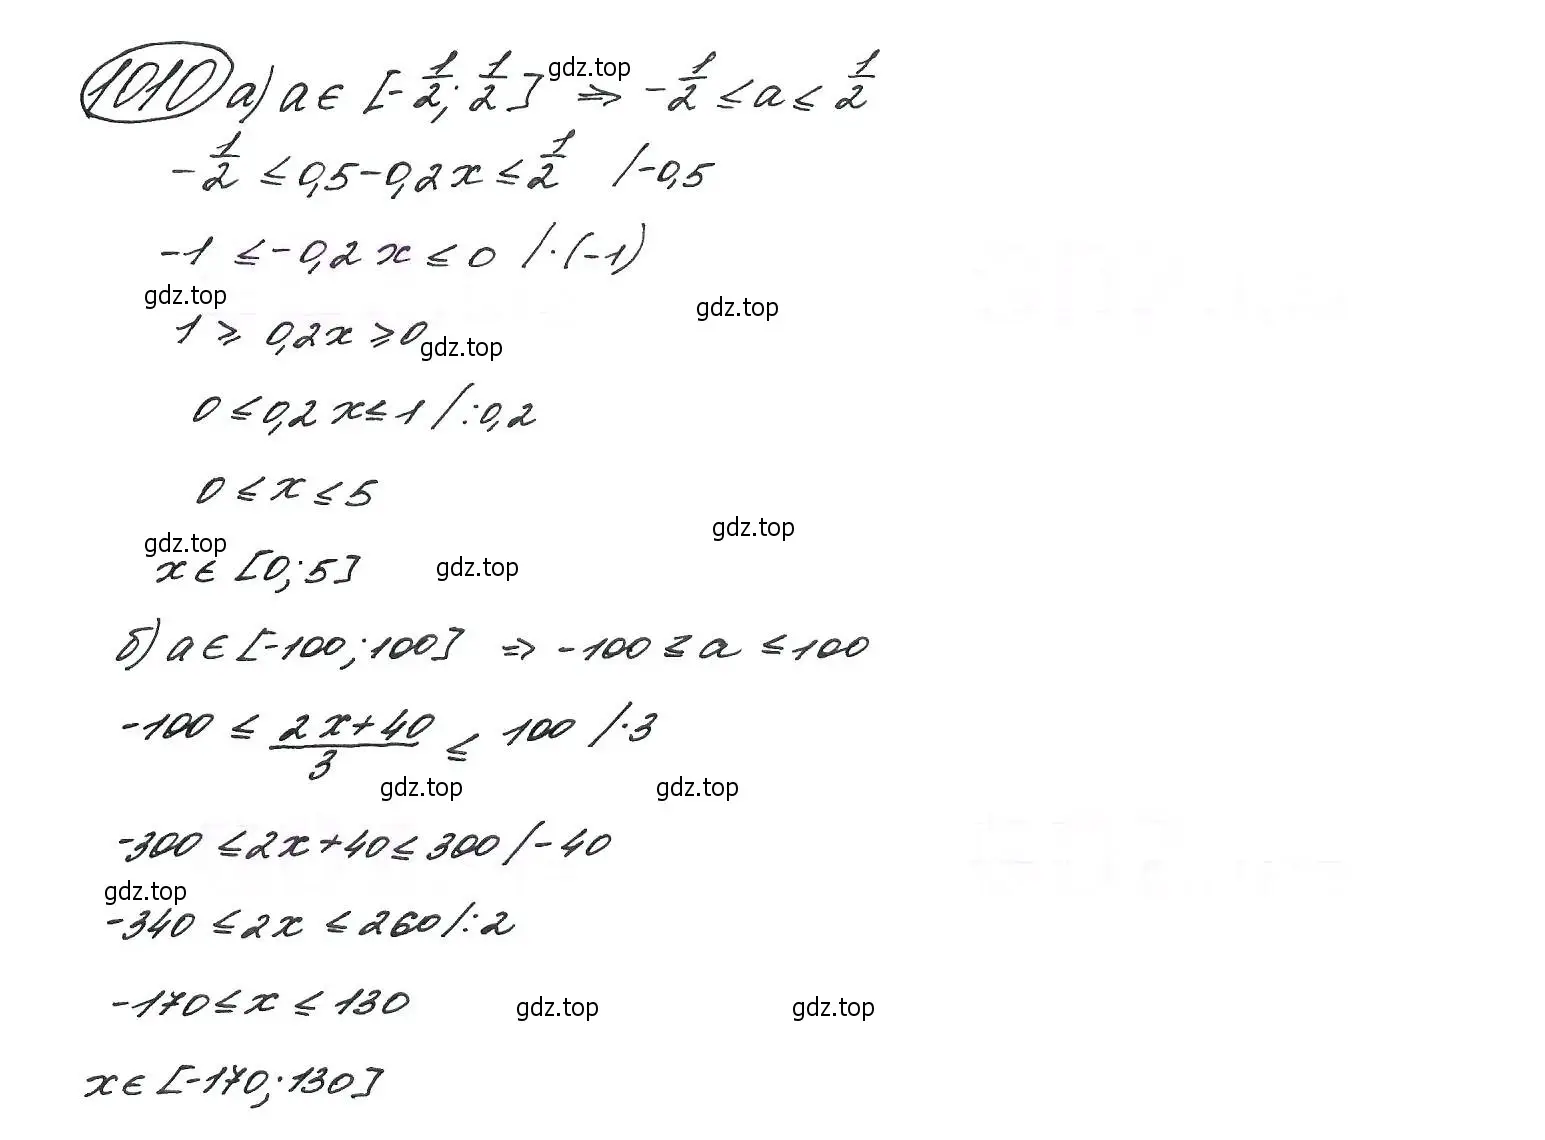 1010 а) a ∈ [-1/2; 1/2] ⇒ -1/2 ≤ a ≤ 1/2
gdz.top
-1/2 ≤ 0,5-0,2x ≤ 1/2 /-0,5
-1 ≤ -0,2x ≤ 0 /·(-1)
gdz.top gdz.top
1 ≥ 0,2x ≥ 0
gdz.top
0 ≤ 0,2x ≤ 1 /:0,2
0 ≤ x ≤ 5
gdz.top gdz.top
x ∈ [0; 5] gdz.top
б) a ∈ [-100; 100] ⇒ -100 ≤ a ≤ 100
-100 ≤ (2x+40)/3 ≤ 100 /·3
gdz.top gdz.top
-300 ≤ 2x+40 ≤ 300 /-40
gdz.top
-340 ≤ 2x ≤ 260 /:2
-170 ≤ x ≤ 130 gdz.top gdz.top
x ∈ [-170; 130]